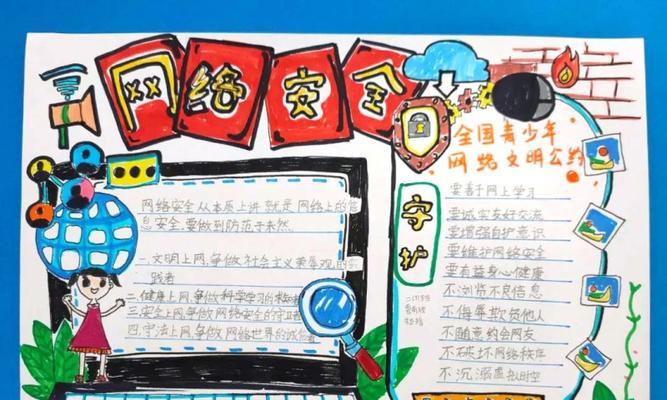 网络安全
全国青少年
网络文明公约
网络安全从本质上讲就是网络上的信
息安全,要做到防范于未然
一.文明上网,争做社会主义荣辱观的实
践者
二.健康上网,争做科学学习的求知者
三安全上网争做网络安全的守卫者
四.守法上网,争做网络世界的诚信者
守护
要善于网上学习
要诚实友好交流
要增强自护意识
要维护网络安全
要有益身心健康
不浏览不良信息
不侮辱欺负他人
不随意约会网友
不破坏网络秩序
不沉溺虚拟时空